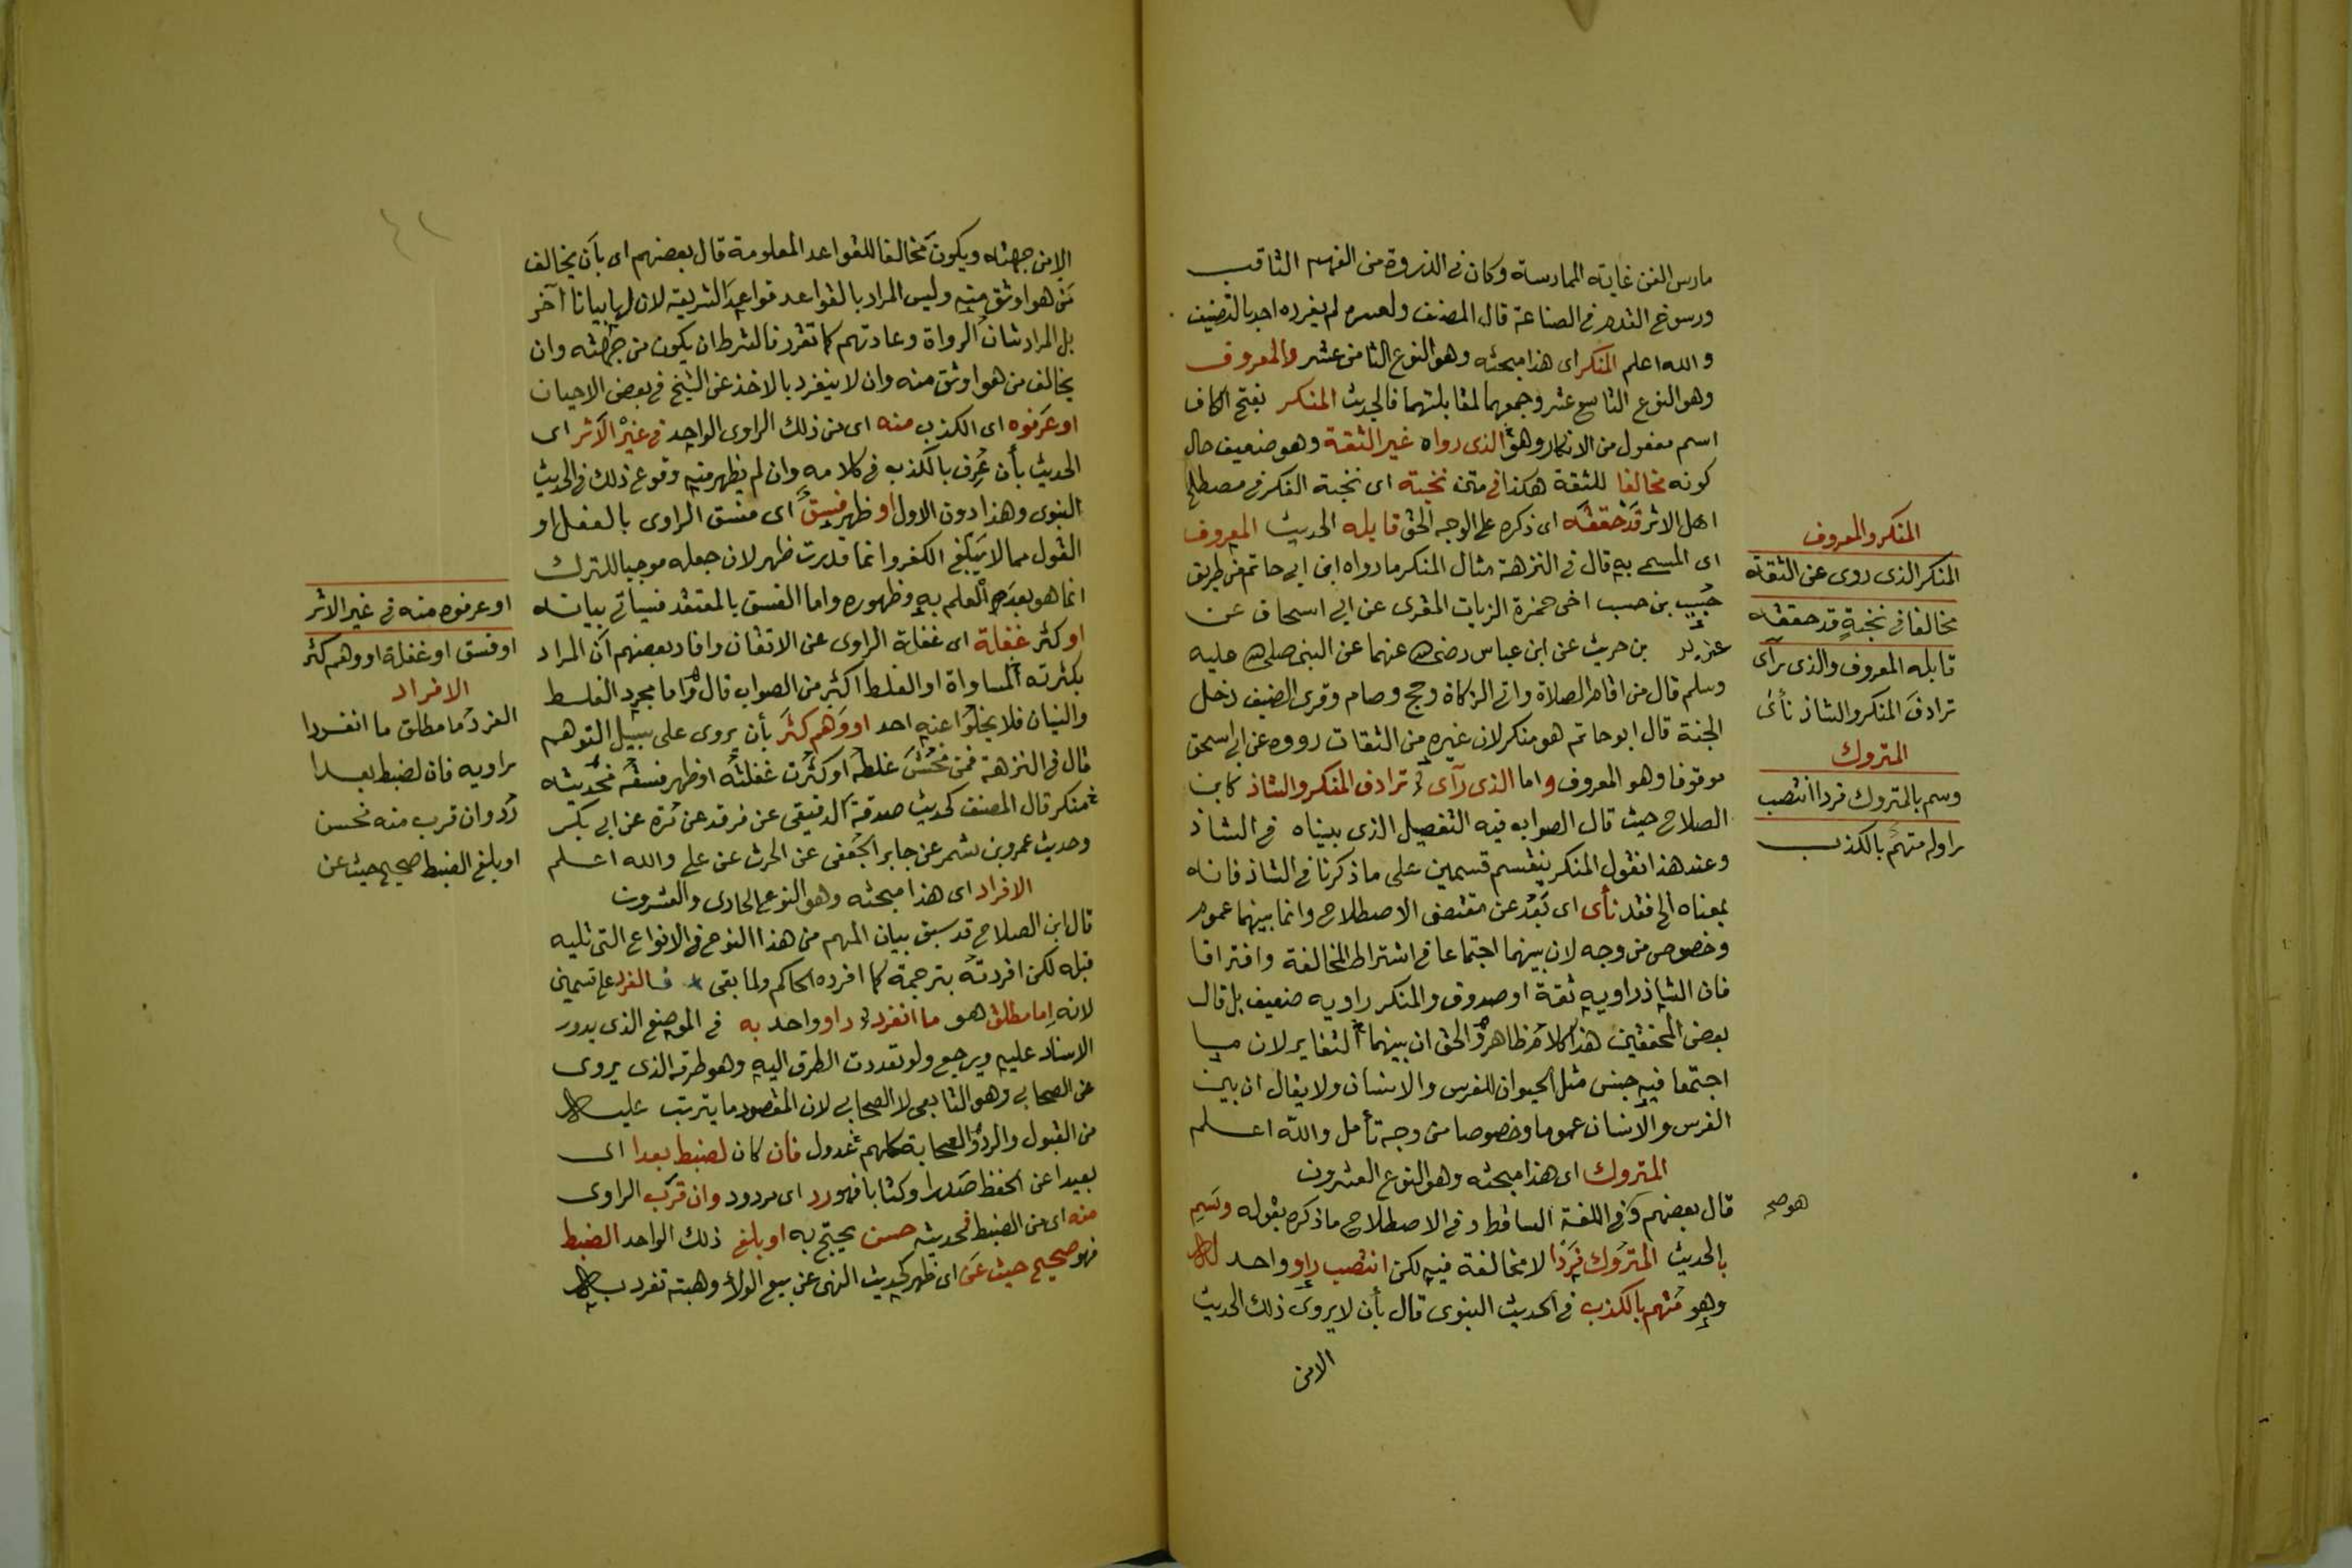 مارس الفن غاية الممارسة وكان في الذروة من الفهم الثاقب
ورسوخ القدم في الصناعة قال المصنف ولعسره لم يفرده احد بالتصنيف
والله اعلم المنكر اى هذا مبحثه وهو النوع الثامن عشر والمعروف
وهو النوع التاسع عشر وجمعهما لمقابلتهما فالحديث المنكر بفتح الكاف
اسم مفعول من الانكار وهو الذى رواه غير الثقة وهو ضعيف حال
كونه مخالفا للثقة هكذا في متن نخبة اى نخبة الفكر في مصطلح
اهل الاثر قد حققه اى ذكره على الوجه الحق قابله الحديث المعروف
اى المسمى به قال في النزهة مثال المنكر ما رواه ابن ابي حاتم من طريق
حُبيّب بن حبيب اخى حمزة الزيات المقرى عن ابي اسحاق عن
بن حريث عن ابن عباس رضى الله عنهما عن النبى صلى الله عليه
وسلم قال من اقام الصلاة واتى الزكاة وحج وصام وقرى الضيف دخل
الجنة قال ابو حاتم هو منكر لان غيره من الثقات رووه عن ابي اسحق
موقوفا وهو المعروف واما الذى رآى ترادف المنكر والشاذ كابن
الصلاح حيث قال الصواب فيه التفصيل الذى بيناه في الشاذ
وعند هذا نقول المنكر ينقسم قسمين على ما ذكرنا في الشاذ فانه
بمعناه الخ فقد نأى اى بَعُد عن مقتضى الاصطلاح وانما بينهما عموم
وخصوص من وجه لان بينهما اجتماعا في اشتراط المخالفة وافتراقا
فان الشاذ راويه ثقة او صدوق والمنكر راويه ضعيف بل قال
بعض المحققين هذا كلام ظاهرى والحق ان بينهما التغاير لان ما
اجتمعا فيه جنس مثل الحيوان للفرس والانسان ولا يقال ان بين
الفرس والانسان عموما وخصوصا من وجه تأمل والله اعلم
المتروك اى هذا مبحثه وهو النوع العشرون
قال بعضهم وفي اللغة الساقط وفي الاصطلاح ما ذكره بقوله وسم
بالحديث المتروك فردا لا مخالفة فيه لكن انتصب راو واحد له
وهو متهم بالكذب في الحديث النبوى قال بأن لا يروى ذلك الحديث
الا من
المنكر والمعروف
المنكر الذى روى عن الثقة
مخالفا في نخبة قد حققه
قابله المعروف والذى رآى
ترادف المنكر والشاذ نأى
المتروك
وسم بالمتروك فردا انتصب
راو له متهم بالكذب
هو صح
الا من جهته ويكون مخالفا للقواعد المعلومة قال بعضهم اى بأن يخالف
من هو اوثق منه وليس المراد بالقواعد قواعد الشريعة لان لها بيانا آخر
بل المراد شأن الرواة وعادتهم كما تقرر فالشرط ان يكون من جهته وان
يخالف من هو اوثق منه وان لا ينفرد بالاخذ عن الشيخ في بعض الاحيان
او عرفوه اى الكذب منه اى من ذلك الراوى الواحد في غير الاثر اى
الحديث بأن عُرف بالكذب في كلامه وان لم يظهر منه وقوع ذلك في الحديث
النبوى وهذا دون الاول او ظهر فسق اى فسق الراوى بالفعل او
القول مما لا يبلغ الكفر وانما قدرت ظهر لان جعله موجبا للترك
انما هو بعد العلم به وظهوره واما الفسق بالمعتقد فسيأتى بيانه
او كثر غفلة اى غفلة الراوى عن الاتقان وافاد بعضهم ان المراد
بكثرته المساواة او الغلط اكثر من الصواب قال واما مجرد الغلط
والنسيان فلا يخلوا عنه احد او وهم كثر بأن يروى على سبيل التوهم
قال في النزهة فمن فحش غلطه او كثرت غفلته او ظهر فسقه فحديثه
منكر قال المصنف كحديث صدقة الدقيقى عن فرقد عن مرة عن ابي بكر
وحديث عمرو بن شمر عن جابر الجعفى عن الحرث عن على والله اعلم
الافراد اى هذا مبحثه وهو النوع الحادى والعشرون
قال ابن الصلاح قد سبق بيان المهم من هذا النوع في الانواع التى تليه
قبله لكن افردته بترجمة كما افرده الحاكم ولما بقى فالفرد على قسمين
لانه اما مطلق هو ما انفرد راو واحد به في الموضع الذى يدور
الاسناد عليه ويرجع ولو تعددت الطرق اليه وهو طرفه الذى يروى
عن الصحابي وهو التابعى لا الصحابي لان المقصود ما يترتب عليه
من القبول والرد والصحابة كلهم عدول فان كان لضبط بعدا اى
بعيدا عن الحفظ صدرا وكتابا فهو رد اى مردود وان قرب الراوى
منه اى من الضبط فحديثه حسن يحتج به او بلغ ذلك الواحد الضبط
فهو صحيح حيث عن اى ظهر كحديث النهى عن بيع الولاء وهبته تفرد به
او عرفوه منه في غير الاثر
او فسق او غفلة او وهم كثر
الافراد
الفرد اما مطلق ما انفردا
راويه فان لضبط بعدا
رُد وان قرب منه فحسن
او بلغ الضبط صحيح حيث عن